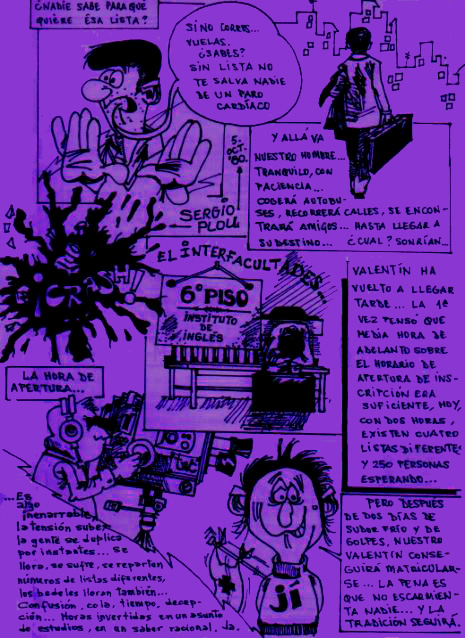 ¿NADIE SABE PARA QUÉ
QUIERE ESA LISTA?
SI NO CORRES...
VUELAS.
¿SABES?
SIN LISTA NO
TE SALVA NADIE
DE UN PARO
CARDÍACO
5-
OCT-
'80.
SERGIO-
PLOU-
Y ALLÁ VA
NUESTRO HOMBRE...
TRANQUILO, CON
PACIENCIA...
COGERÁ AUTOBU-
SES, RECORRERÁ CALLES, SE ENCON-
TRARÁ AMIGOS... HASTA LLEGAR A
SU DESTINO... ¿CUAL? SONRÍAN...
EL INTERFACULTADES...
6º PISO
INSTITUTO
DE
INGLÉS
VALENTÍN HA
VUELTO A LLEGAR
TARDE... LA 1ª
VEZ PENSÓ QUE
MEDIA HORA DE
ADELANTO SOBRE
EL HORARIO DE
APERTURA DE INS-
CRIPCIÓN ERA
SUFICIENTE, HOY,
CON DOS HORAS,
EXISTEN CUATRO
LISTAS DIFERENTES
Y 250 PERSONAS
ESPERANDO...
LA HORA DE
APERTURA...
...Es
algo
inenarrable,
la tensión sube,
la gente se duplica
por instantes... Se
llora, se sufre, se reparten
números de listas diferentes,
los bedeles lloran también...
Confusión, cola, tiempo, decep-
ción... Horas invertidas en un asunto
de estudios, en un saber racional. Ja.
ji
PERO DESPUÉS
DE DOS DÍAS DE
SUDOR FRÍO Y DE
GOLPES, NUESTRO
VALENTÍN CONSE-
GUIRÁ MATRICULAR-
SE... LA PENA ES
QUE NO ESCARMIEN-
TA NADIE... Y LA
TRADICIÓN SEGUIRÁ.